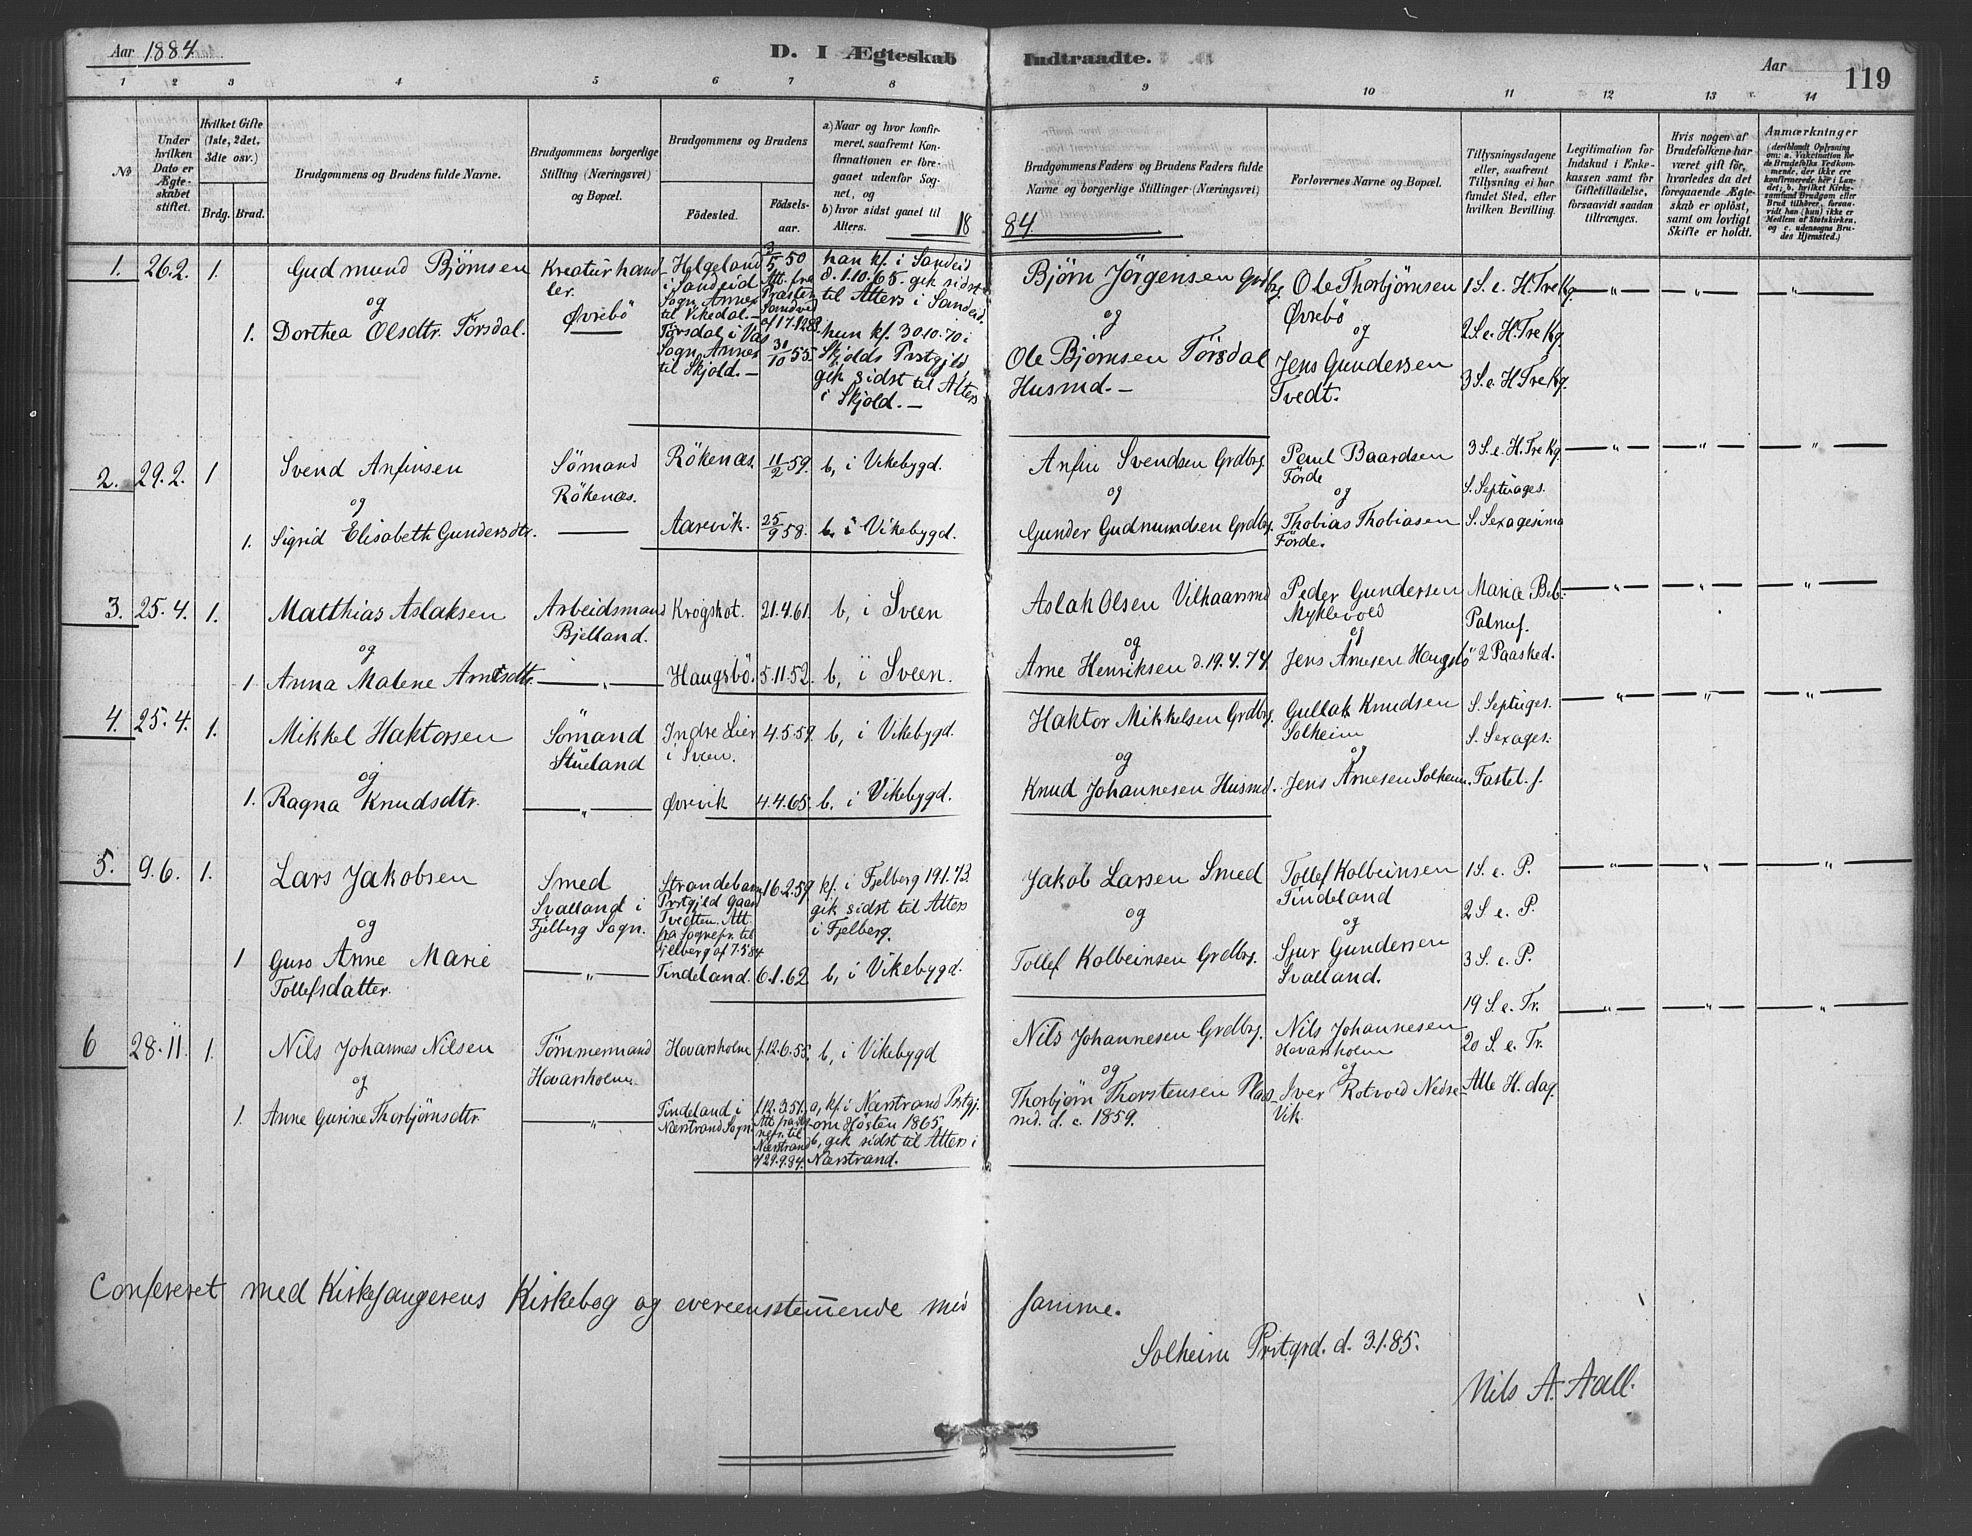 Aar 1884.
D. I Ægteskab Indtraadte.
Aar
119
1 2 3 4 5 6 7 8 9 10 11 12 13 14
No
Under hvilken Dato er Ægteskabet stiftet.
Hvilket Gifte (1ste, 2det, 3die osv.)
Brdg. Brud.
Brudgommens og Brudens fulde Navne.
Brudgommens borgerlige Stilling (Næringsvei) og Bopæl.
Brudgommens og Brudens
Fødested.
Fødselsaar.
a) Naar og hvor konfirmeret, saafremt Konfirmationen er foregaaet udenfor Sognet, og
b) hvor sidst gaaet til Alters.
Brudgommens Faders og Brudens Faders fulde Navne og borgerlige Stillinger (Næringsvei)
Forlovernes Navne og Bopæl.
Tillysningsdagene eller, saafremt Tillysning ei har fundet Sted, efter hvilken Bevilling.
Legitimation for Indskud i Enkekassen samt for Giftetilladelse, forsaavidt saadan tiltrænges.
Hvis nogen af Brudefolkene har været gift før, hvorledes da det foregaaende Ægteskab er opløst, samt om lovligt Skifte er holdt.
Anmærkninger (deriblandt Oplysning om: a. Vakcination for de Brudefolks Vedkommende, der ikke ere konfirmerede her i Landet; b. hvilket Kirkesamfund Brudgom eller Brud tilhører, forsaavidt han (hun) ikke er Medlem af Statskirken, og c. udensogns Brudes Hjemsted.)
1884.
1. 26.2. 1. Gudmund Björnsen Kreaturhandler. Øvrebö
Helgeland i Sandeid Sogn, Annex til Vikedal.—
3/5 50 Att. fra Præsten Sandeid af 17.12.83.
han kf. i Sandeid d. 1.10.65. gik sidst til Alters i Sandeid.
Björn Jörgensen Grdbrg.
Ole Thorbjörnsen Øvrebö
1 S. e. H. Tre Kg.
og
1. Dorthea Olsdtr. Törsdal.
Törsdal i Vas Sogn, Annex til Skjold.—
31/10 55.
hun kf. 30.10.70 i Skjolds Prstgjld, gik sidst til Alters i Skjold.—
og
Ole Björnsen Törsdal Husmd.—
og
Jens Gundersen Tvedt.
2 S. e. H. Tre Kg.
3 S. e. H. Tre Kg.
2. 29.2. 1 Svend Anfinsen Sömand Rökenæs. Rökenæs. 11/2 59. b, i Vikebygd.
Anfin Svendsen Grdbrg.
Poul Baardsen Förde
3 S. e. H. Tre Kg.
S. Septuages.
og
1. Sigrid Elisabeth Gundersdtr. Aarevik. 25/9 58. b, i Vikebygd.
og
Gunder Gudmundsen Grdbrg.
og
Thobias Thobiasen Förde.
S. Sexagesima
3. 25.4. 1. Matthias Aslaksen Arbeidsmand Bjelland. Krogskot. 21.4.61. b, i Sveen
Aslak Olsen Vilkaarsmd
Peder Gundersen Myklevold
Maria Beb.
Palmes.
og
1. Anna Malene Arnesdtr. — „ — Haugsbö. 5.11.52. b, i Sveen.
og
Arne Henriksen d. 19.4.74.
og
Jens Arnesen Haugsbö
2 Paasked.
4. 25.4. 1. Mikkel Haktorsen Sömand Stueland Indre Lier i Sveen. 4.5.59. b, i Vikebygd.
Haktor Mikkelsen Grdbrg.
Gullak Knudsen Solheim
S. Septuges.
S. Sexages.
og
1. Ragna Knudsdtr. — „ — Øvrevik 4.4.65. b, i Vikebygd.
og
Knud Johannesen Husmd.
og
Jens Arnesen Solheim.
Fastel. s.
5. 9.6. 1. Lars Jakobsen Smed Svalland i Fjelberg Sogn.
Strandebarm Prstgjld Gaard Tvedten. Att. fra Sognepr. til Fjelberg af 7.5.84
16.2.59. kf. i Fjelberg 19.1.73. gik sidst til Alters i Fjelberg.
Jakob Larsen Smed
Tollef Kolbeinsen Tindeland
1 S. e. P.
2 S. e. P.
og
1 Guro Anne Marie Tollefsdatter. — „ — Tindeland. 6.1.62. b, i Vikebygd.
og
Tollef Kolbeinsen Grdbrg.
og
Sjur Gundersen Svalland.
3 S. e. P.
6 28.11. 1. Nils Johannes Nilsen Tömmermand Hovarsholm. Hovarsholm f. 12.6.55. b, i Vikebygd
Nils Johannesen Grdbrg.
Nils Johannesen Hovarsholm
19 S. e. Tr.
20 S. e. Tr.
og
1. Anne Gurine Thorbjörnsdtr. — „ — Tindeland i Nærstrand Sogn
12.3.51. Att. fra Sognepr. til Nærstrand af 29.9.84.
a, kf. i Nærstrand Prstgj. om Hösten 1865. b, gik sidst til Alters i Nærstrand.
og
Thorbjörn Thorstensen Pladsmd. d. c. 1859.
og
Iver Rotvold Nedre-Vik.
Alle H. dag.
Confereret med Kirkesangerens Kirkebog og overeensstemmende med samme.
Solheim Prstgrd. d. 3.1.85.
Nils A. Aall.